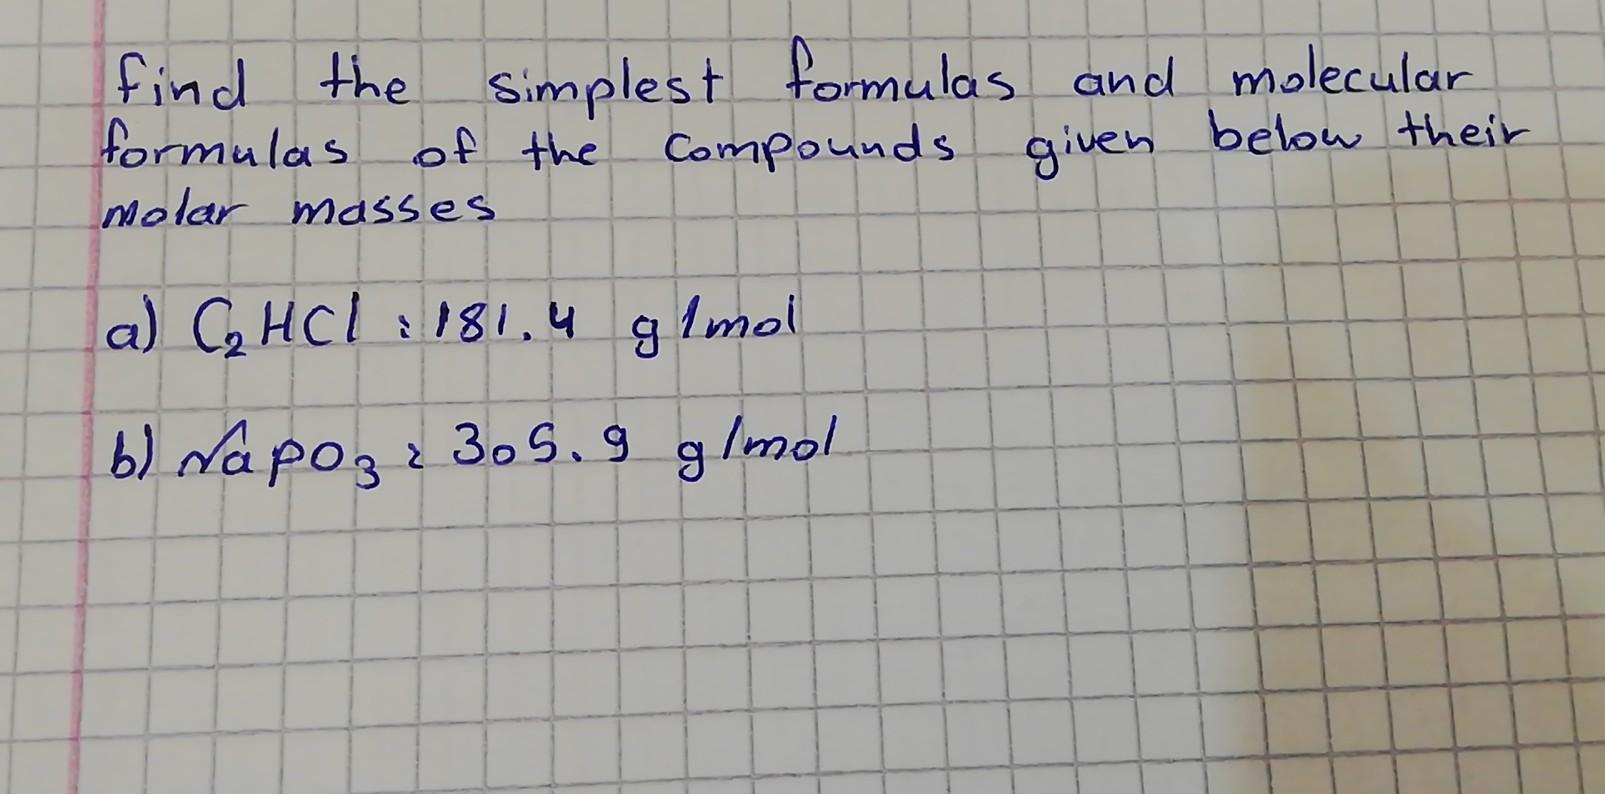 find the simplest formulas and molecular
formulas of the compounds given below their
molar masses
a) C₂HCl : 181.4 g/mol
b) NaPO₃ : 305.9 g/mol